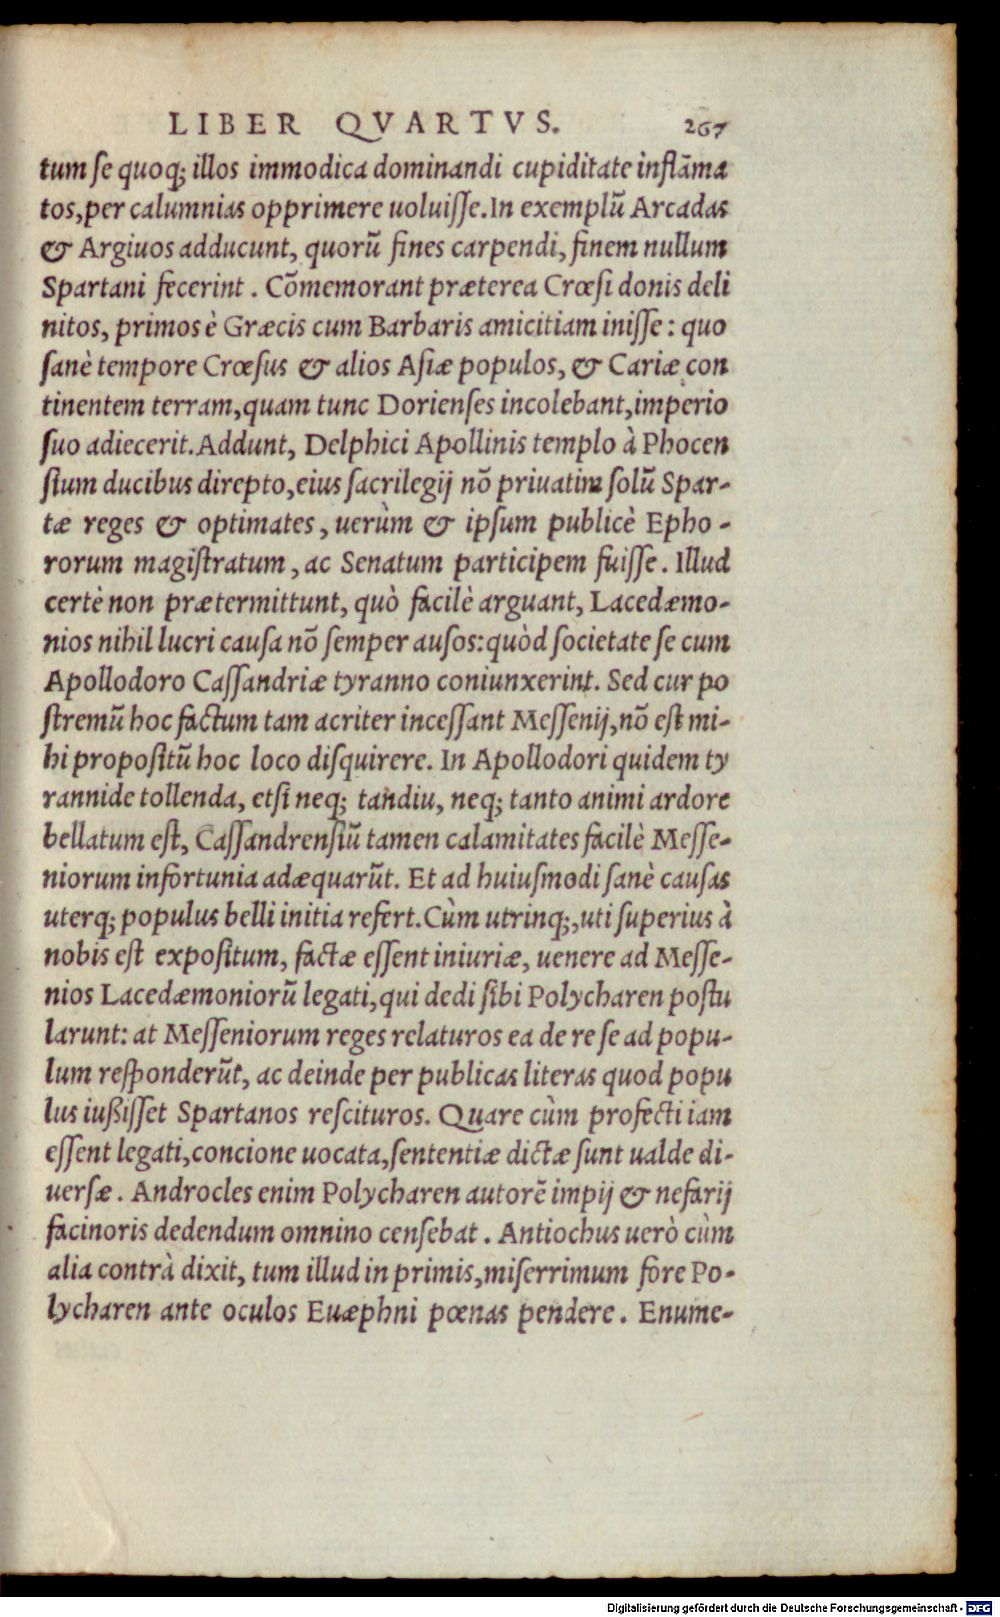 LIBER QVARTVS. 267
tum se quoq; illos immodica dominandi cupiditate inflãma
tos, per calumnias opprimere uoluisse. In exemplũ Arcadas
& Argiuos adducunt, quorũ fines carpendi, finem nullum
Spartani fecerint. Cõmemorant præterea Crœsi donis deli
nitos, primos è Græcis cum Barbaris amicitiam inisse: quo
sanè tempore Crœsus & alios Asiæ populos, & Cariæ con
tinentem terram, quam tunc Dorienses incolebant, imperio
suo adiecerit. Addunt, Delphici Apollinis templo à Phocen
sium ducibus direpto, eius sacrilegij nõ priuatim solũ Spar-
tæ reges & optimates, uerùm & ipsum publicè Epho-
rorum magistratum, ac Senatum participem fuisse. Illud
certè non prætermittunt, quò facilè arguant, Lacedæmo-
nios nihil lucri causa nõ semper ausos: quòd societate se cum
Apollodoro Cassandriæ tyranno coniunxerint. Sed cur po
stremũ hoc factum tam acriter incessant Messenij, nõ est mi-
hi propositũ hoc loco disquirere. In Apollodori quidem ty
rannide tollenda, etsi neq; tandiu, neq; tanto animi ardore
bellatum est, Cassandrensiũ tamen calamitates facilè Messe-
niorum infortunia adæquarũt. Et ad huiusmodi sanè causas
uterq; populus belli initia refert. Cùm utrinq;, uti superius à
nobis est expositum, factæ essent iniuriæ, uenere ad Messe-
nios Lacedæmoniorũ legati, qui dedi sibi Polycharen postu
larunt: at Messeniorum reges relaturos ea de re se ad popu-
lum responderũt, ac deinde per publicas literas quod popu
lus iußisset Spartanos rescituros. Quare cùm profecti iam
essent legati, concione uocata, sententiæ dictæ sunt ualde di-
uersæ. Androcles enim Polycharen autorẽ impij & nefarij
facinoris dedendum omnino censebat. Antiochus uerò cùm
alia contrà dixit, tum illud in primis, miserrimum fore Po-
lycharen ante oculos Euæphni pœnas pendere. Enume-
Digitalisierung gefördert durch die Deutsche Forschungsgemeinschaft - DFG